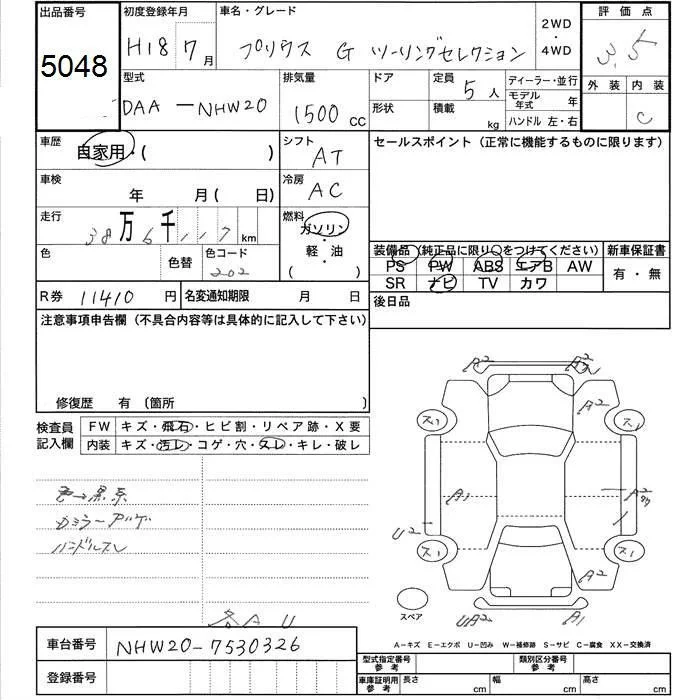 出品番号 初度登録年月 車名・グレード 2WD・4WD 評価点
5048 H18 7月 プリウス G ツーリングセレクション 3.5
型式 排気量 ドア 定員 5人 ディーラー・並行 外装 内装
DAA-NHW20 1500cc 形状 積載 kg モデル年式 年 C
ハンドル 左・右
車歴 自家用・( ) シフト AT セールスポイント(正常に機能するものに限ります)
車検 年 月( 日) 冷房 AC
走行 38万6千117km 燃料 ガソリン・軽・油 ( )
色 色替 色コード 202
装備品(純正品に限り○をつけてください) 新車保証書
PS PW ABS エアB AW 有・無
SR ナビ TV カワ
R券 11410円 名変通知期限 月 日 後日品
注意事項申告欄(不具合内容等は具体的に記入して下さい)
修復歴 有 〔箇所 〕
検査員記入欄 FW キズ・飛石・ヒビ割・リペア跡・X要
内装 キズ・汚レ・コゲ・穴・スレ・キレ・破レ
色→黒系
ハンドルスレ
各A U
A2 A2
ス1 A2 ス1
A1
U2
ス1 ス1
A2
スペア UA2 A1
A-キズ E-エクボ U-凹み W-補修跡 S-サビ C-腐食 XX-交換済
車台番号 NHW20-7530326
登録番号
型式指定番号 参考 類別区分番号 参考
車庫証明用 参考 長さ cm 幅 cm 高さ cm